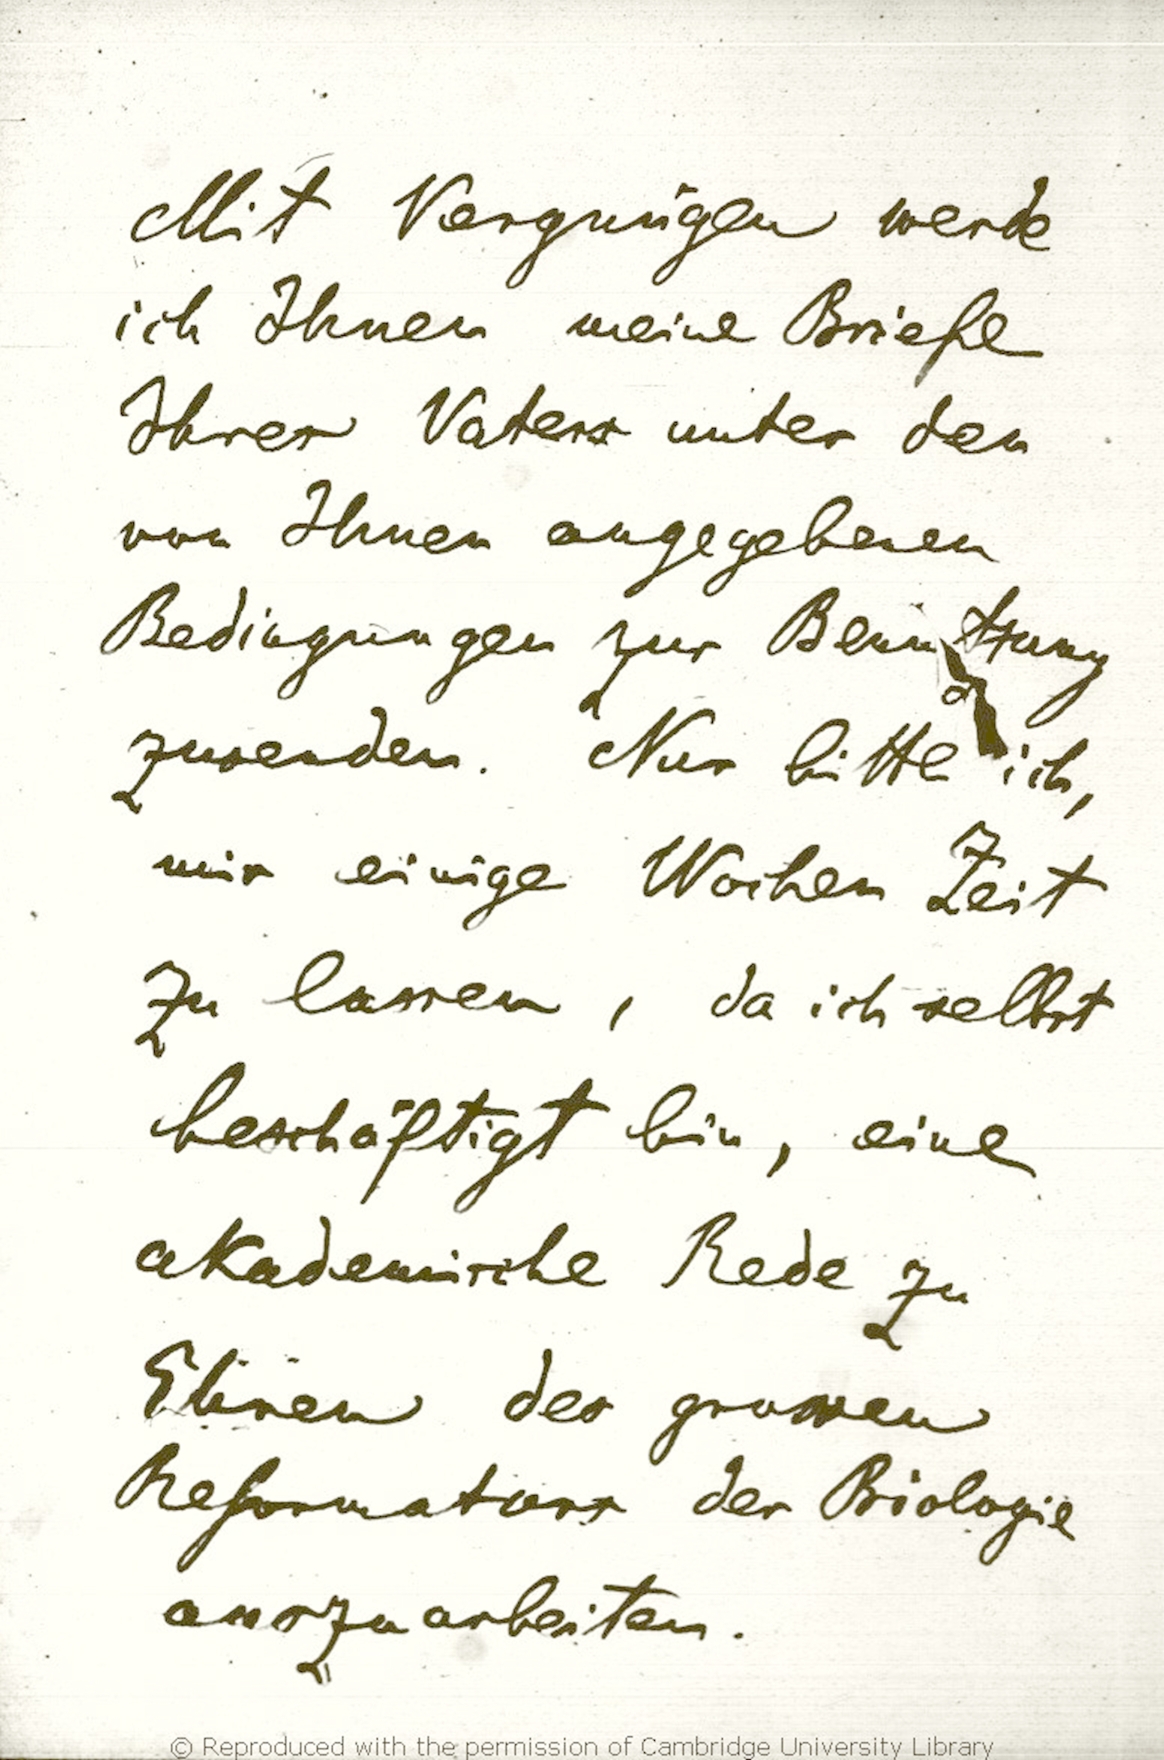 Mit Vergnügen werde
ich Ihnen meine Briefe
Ihres Vaters unter den
von Ihnen angegebenen
Bedingungen zur Benutzung
zusenden. Nur bitte ich,
mir einige Wochen Zeit
zu lassen, da ich selbst
beschäftigt bin, eine
akademische Rede zu
Ehren des grossen
Reformators der Biologie
auszuarbeiten.
© Reproduced with the permission of Cambridge University Library